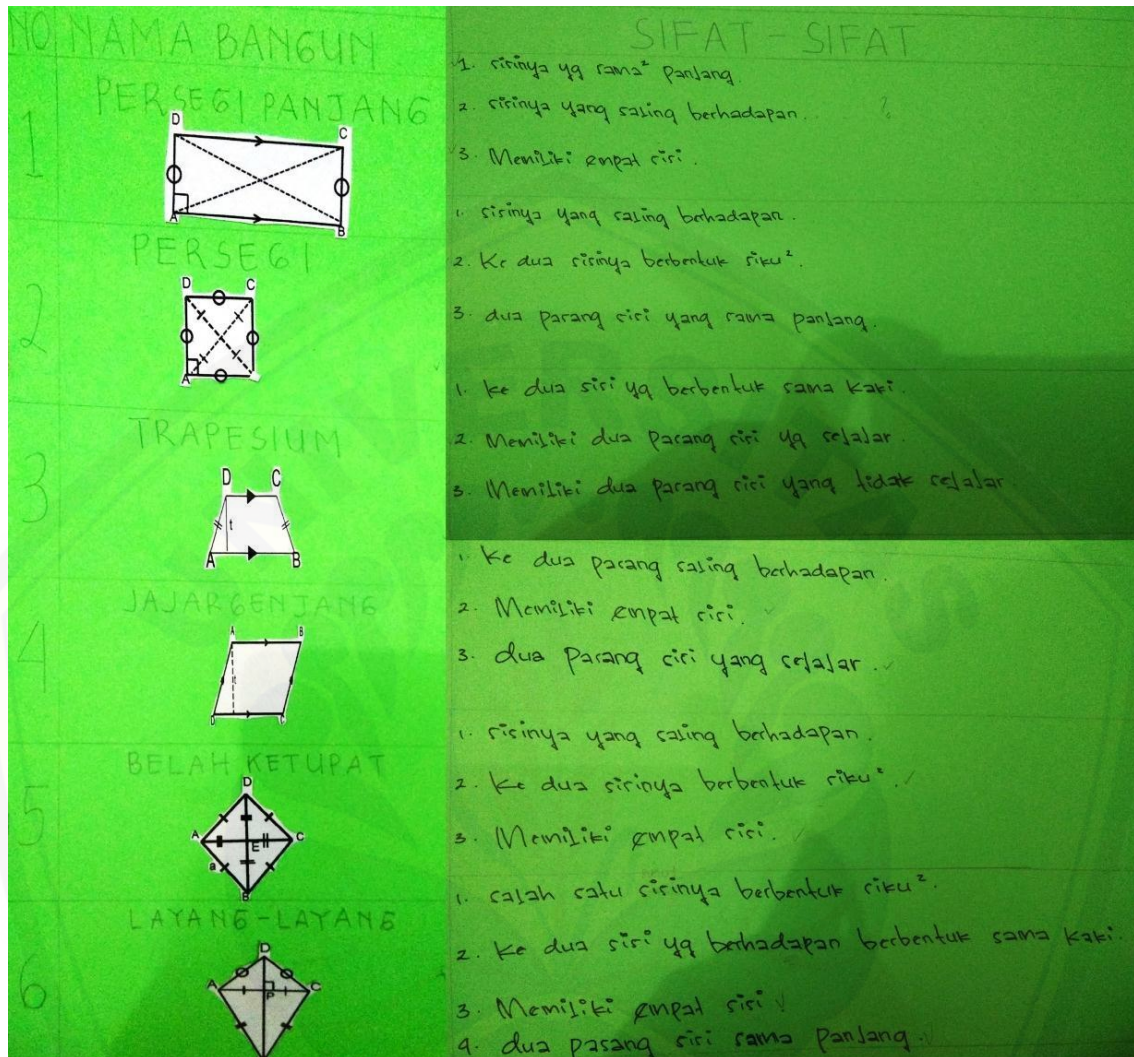 NO NAMA BANGUN SIFAT - SIFAT
1 PERSEGI PANJANG
D C
A B
1. sisinya yg sama² panjang
2. sisinya yang saling berhadapan. ?
3. Memiliki empat sisi.
2 PERSEGI
D C
A
1. sisinya yang saling berhadapan.
2. Ke dua sisinya berbentuk siku².
3. dua pasang sisi yang sama panjang.
3 TRAPESIUM
D C
t
A B
1. ke dua sisi yg berbentuk sama kaki.
2. Memiliki dua pasang sisi yg sejajar.
3. Memiliki dua pasang sisi yang tidak sejajar.
4 JAJARGENJANG
A B
t
D C
1. Ke dua pasang saling berhadapan.
2. Memiliki empat sisi.
3. dua pasang sisi yang sejajar.
5 BELAH KETUPAT
D
A E C
a
B
1. sisinya yang saling berhadapan.
2. Ke dua sisinya berbentuk siku².
3. Memiliki empat sisi.
6 LAYANG-LAYANG
D
A P C
1. salah satu sisinya berbentuk siku².
2. Ke dua sisi yg berhadapan berbentuk sama kaki.
3. Memiliki empat sisi
4. dua pasang sisi sama panjang.